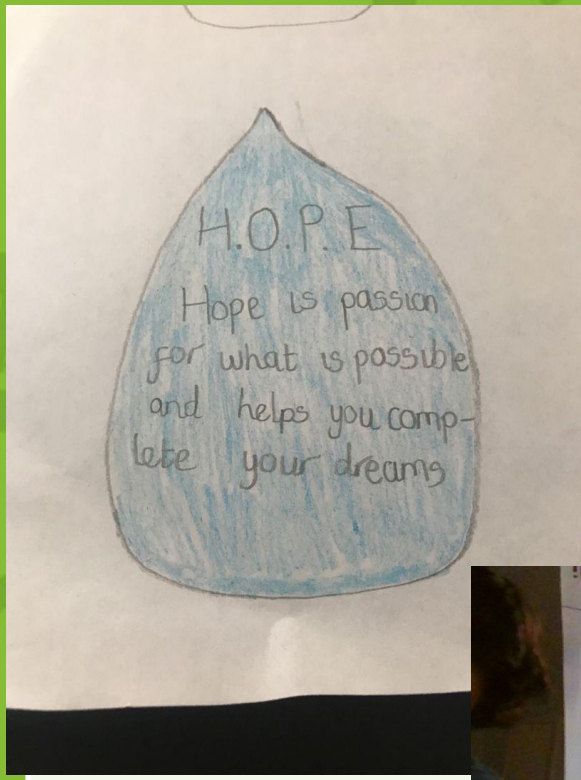 H.O.P.E
Hope is passion
for what is possible
and helps you comp-
lete your dreams